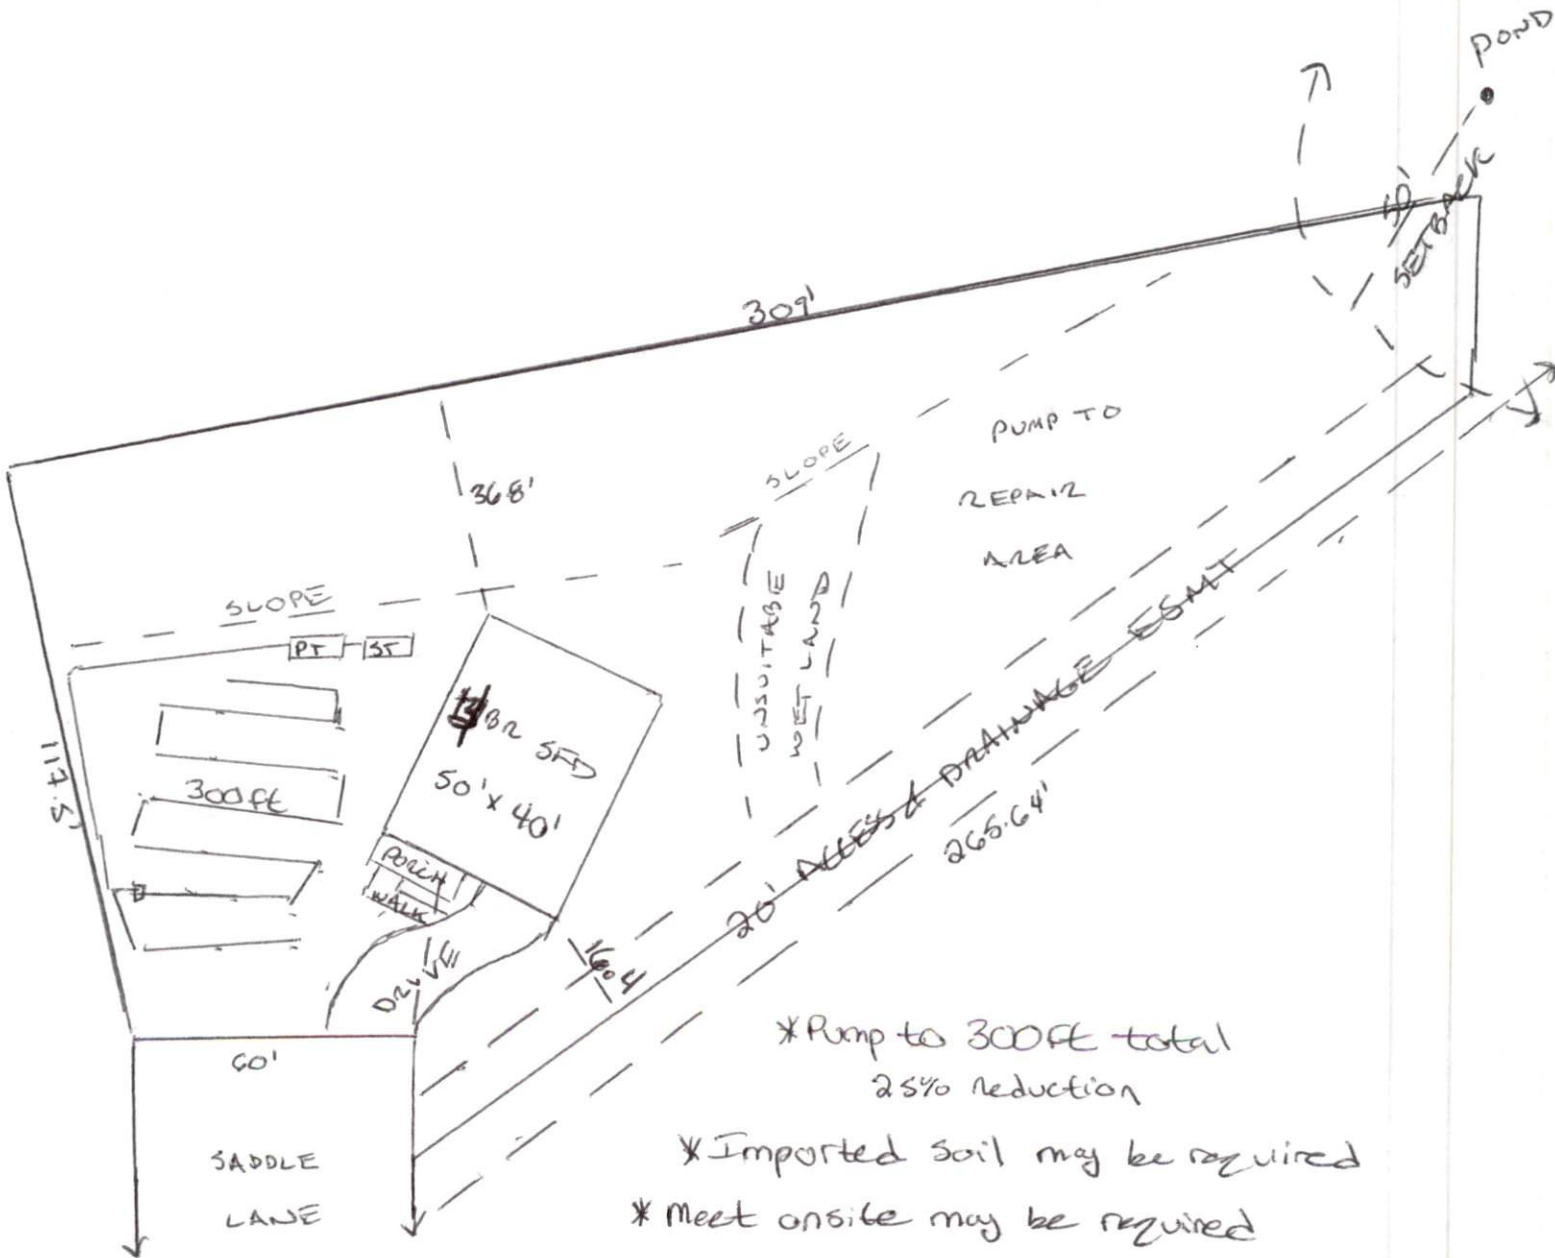 POND
50'
SETBACK
309'
368'
SLOPE
PUMP TO
REPAIR
AREA
SLOPE
PT
ST
UNSUITABE
WET LAND
BR SFD
50' x 40'
300ft
117.5
PORCH
WALK
DRIVE
16.4
20' ACCESS & DRAINAGE ESMT
265.64'
60'
SADDLE
LANE
*Pump to 300ft total
25% reduction
*Imported soil may be required
*Meet onsite may be required